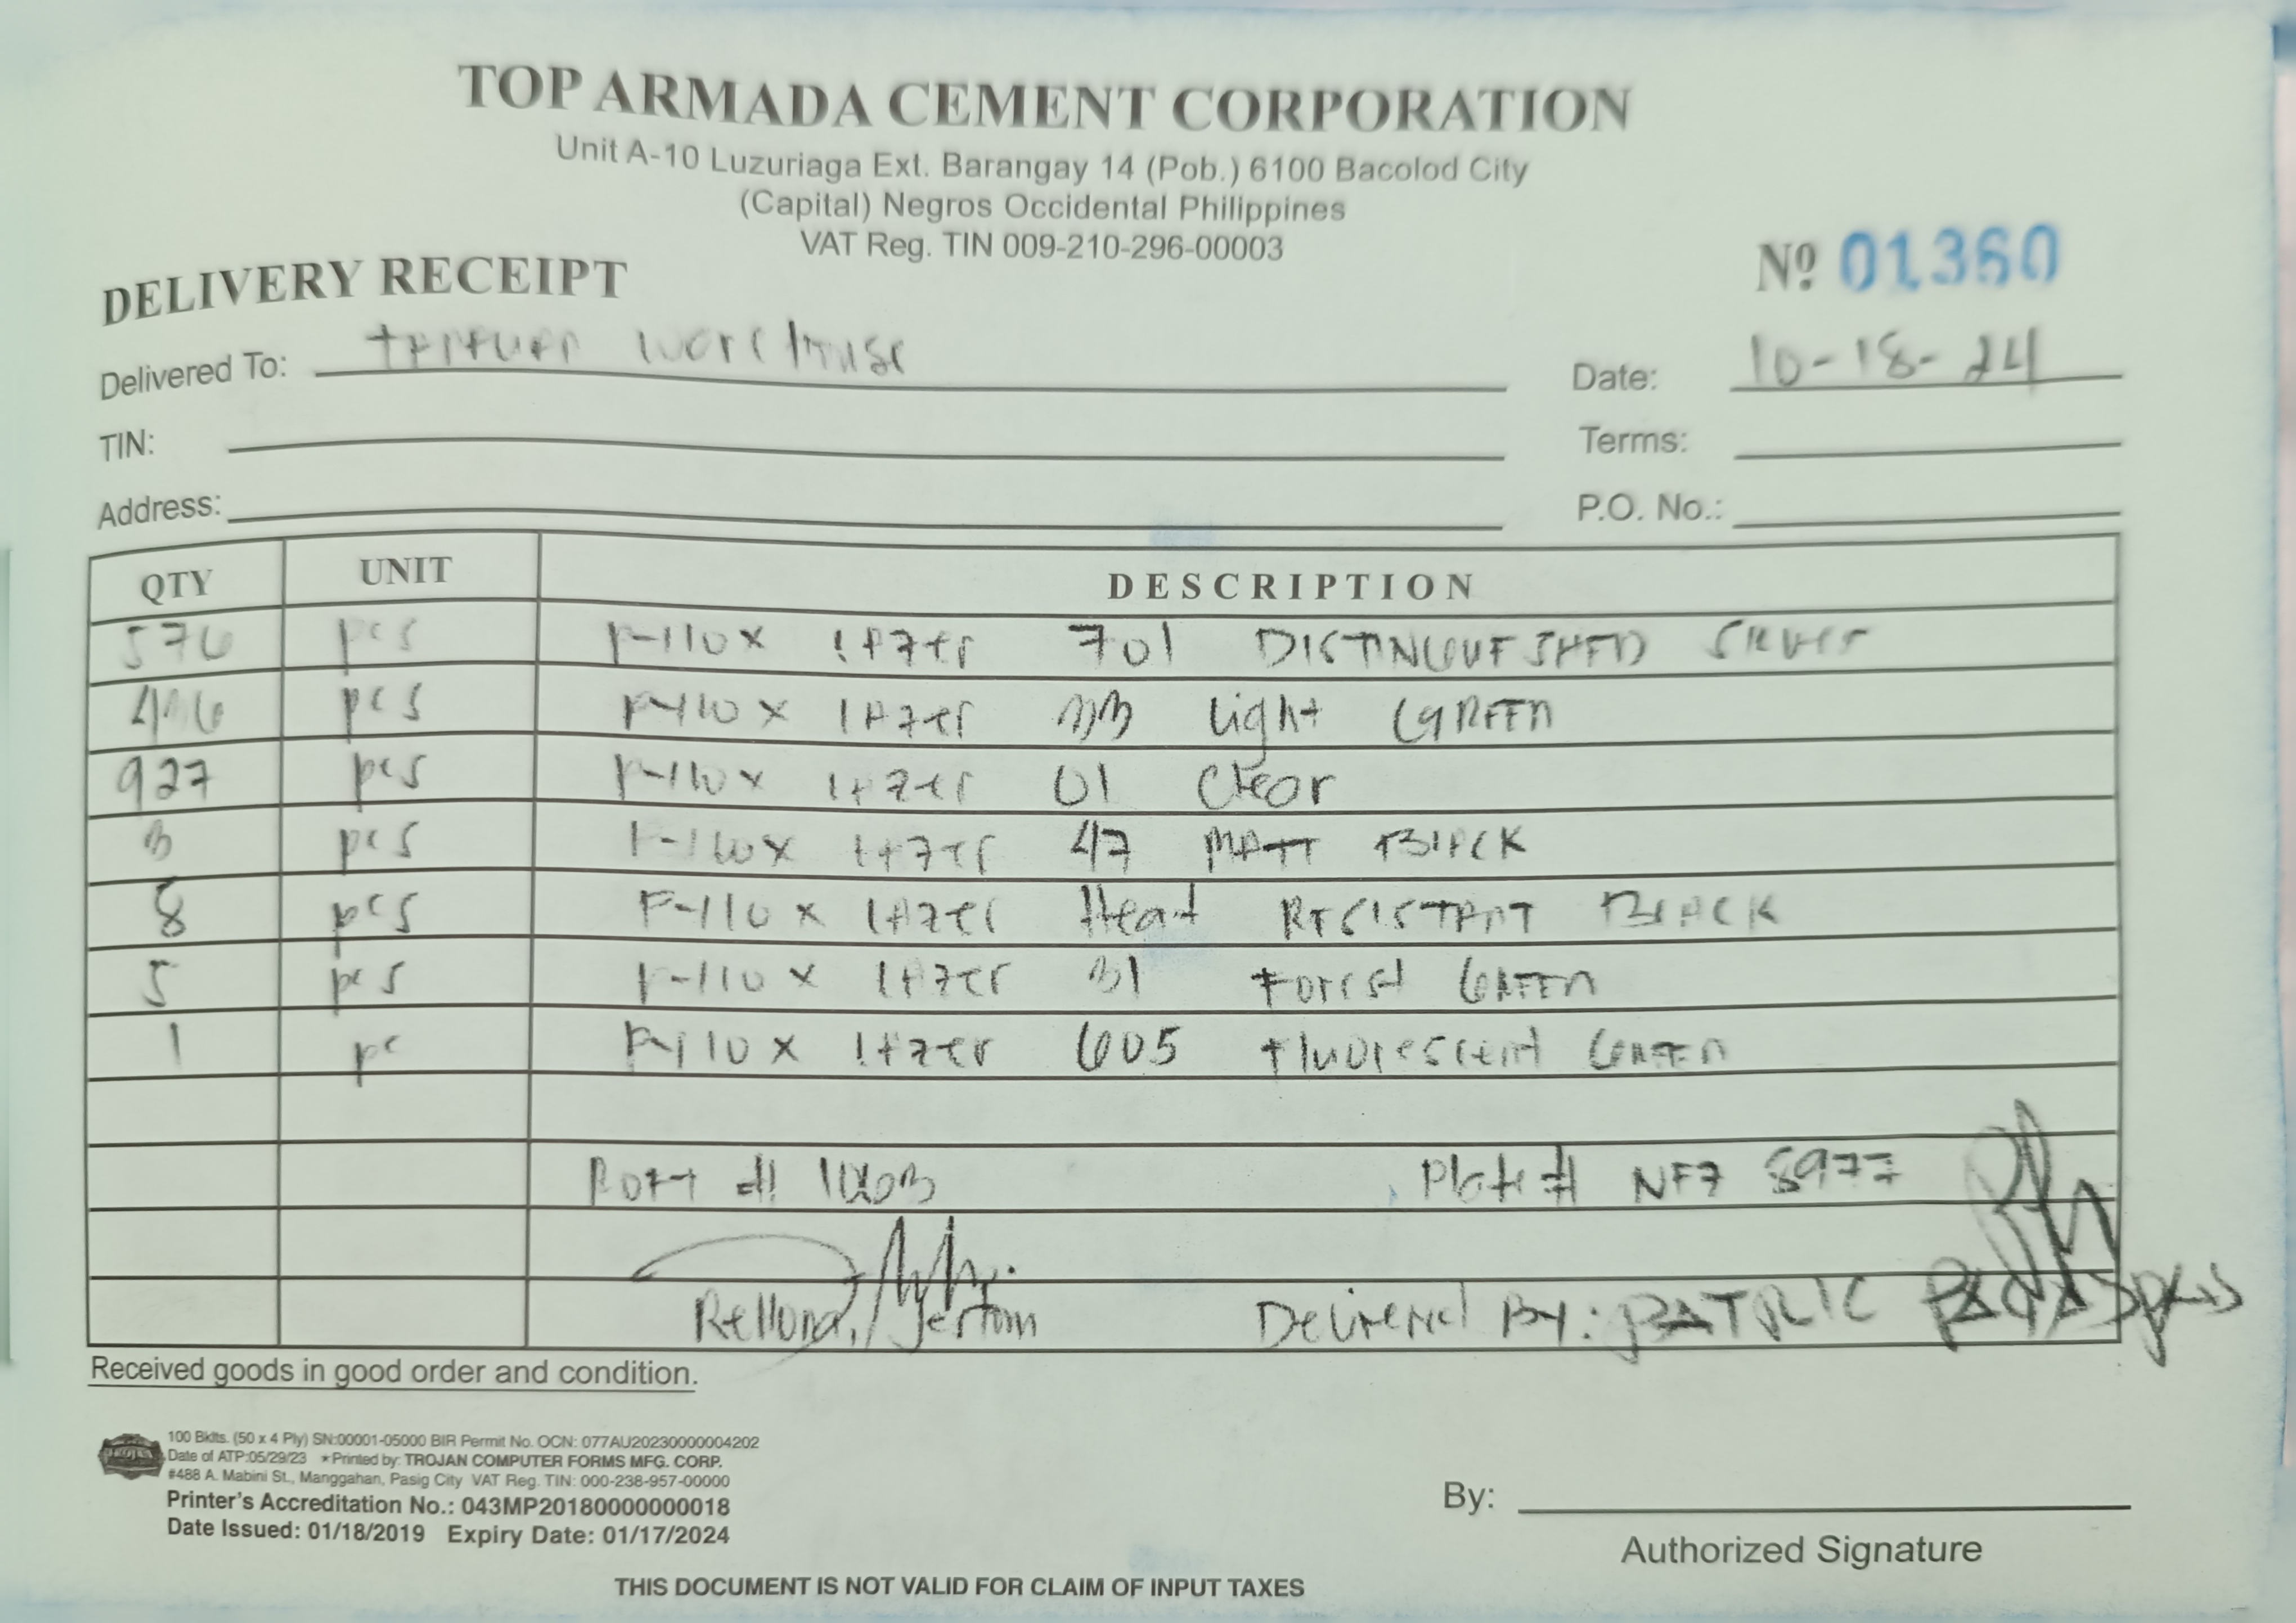 TOP ARMADA CEMENT CORPORATION
Unit A-10 Luzuriaga Ext. Barangay 14 (Pob.) 6100 Bacolod City
(Capital) Negros Occidental Philippines
VAT Reg. TIN 009-210-296-00003
DELIVERY RECEIPT Nº 01360
Delivered To: Date: 10-18-24
TIN: Terms:
Address: P.O. No.:
QTY UNIT DESCRIPTION
576 pcs F-110x 701
pcs F-110x Light GREEN
927 pcs F-110x 01 Clear
3 pcs F-110x 47 MATT BLACK
8 pcs F-110x Heat RESISTANT BLACK
5 pcs F-110x 31 Forest GREEN
1 pc F-110x 605 Fluorescent GREEN
Plate # NFZ 8977
Delivered By: PATRIC
Received goods in good order and condition.
100 Bklts. (50 x 4 Ply) SN:00001-05000 BIR Permit No. OCN: 077AU20230000004202
Date of ATP:05/29/23 ★Printed by: TROJAN COMPUTER FORMS MFG. CORP.
#488 A. Mabini St., Manggahan, Pasig City VAT Reg. TIN: 000-238-957-00000
Printer's Accreditation No.: 043MP20180000000018
Date Issued: 01/18/2019 Expiry Date: 01/17/2024
By:
Authorized Signature
THIS DOCUMENT IS NOT VALID FOR CLAIM OF INPUT TAXES